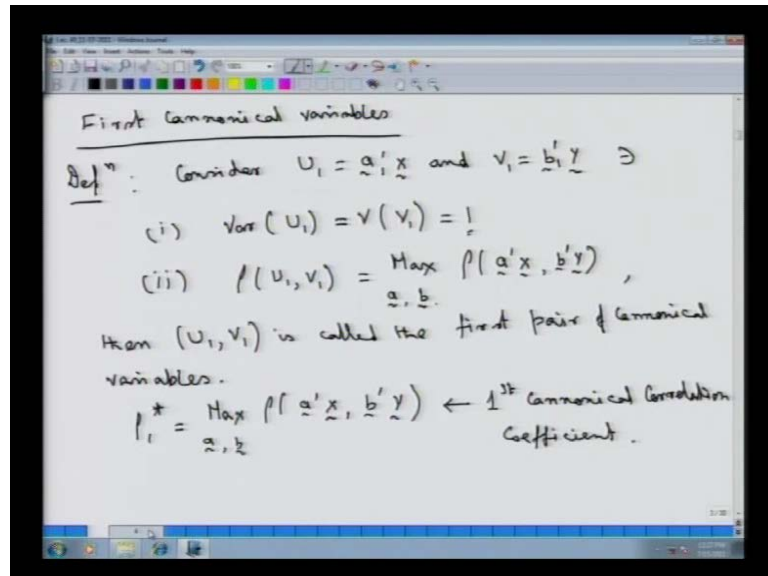 First Cannonical variables
Defⁿ : Consider U₁ = a₁'x and V₁ = b₁'y ∋
(i) Var(U₁) = V(V₁) = 1
(ii) ρ(U₁, V₁) = Max ρ(a'x, b'y) ,
a, b.
then (U₁, V₁) is called the first pair of Cannonical
variables.
ρ₁* = Max ρ(a'x, b'y) ← 1st Cannonical Correlation
a, b
Coefficient.